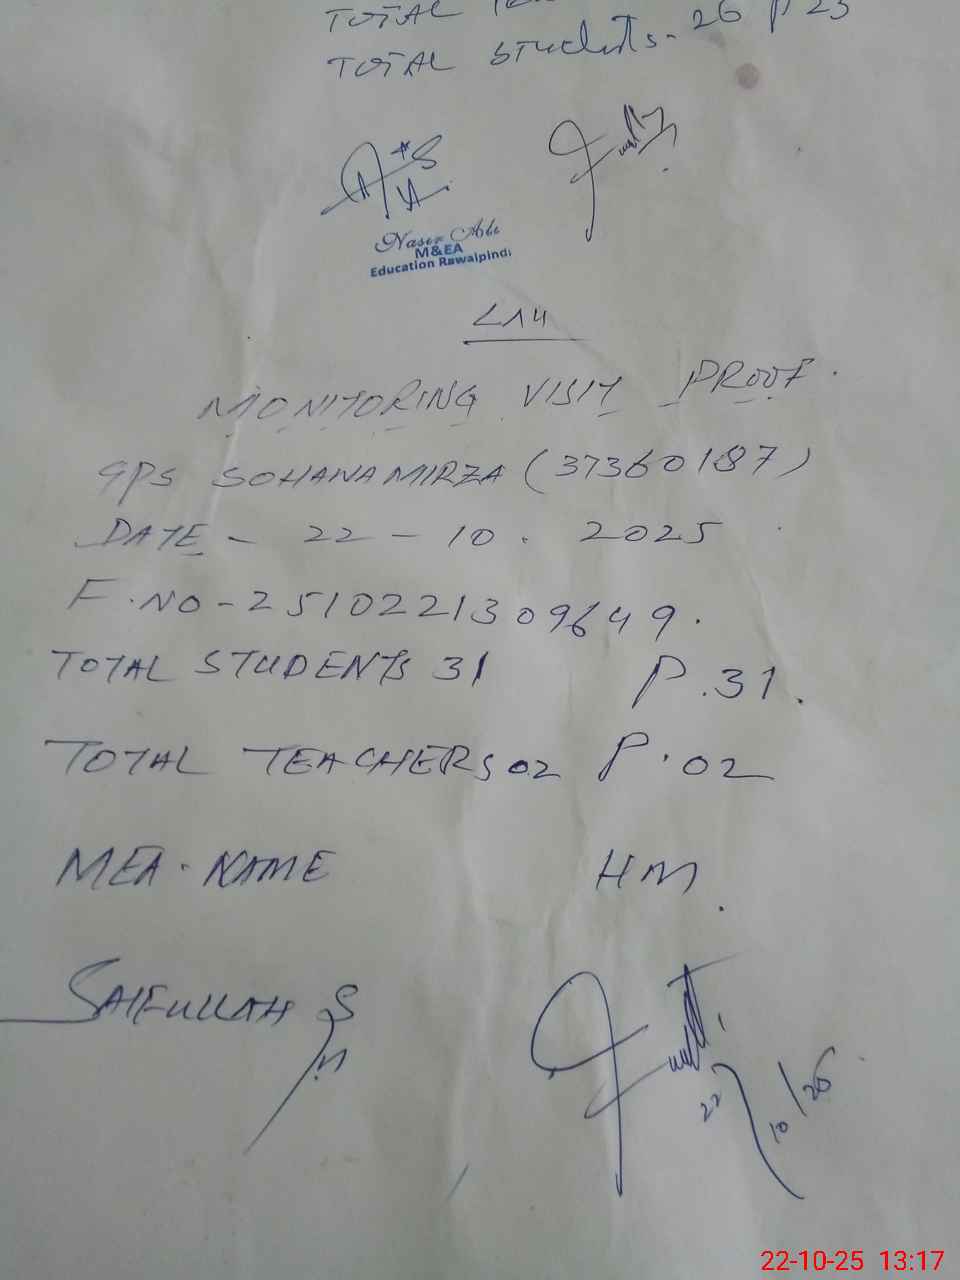 TOTAL
TOTAL Students - 26 P 23
Naser Ali
M&EA
Education Rawalpindi
LA4
MONITORING VISIT PROOF.
GPS SOHANA MIRZA (37360187)
DATE - 22 - 10 . 2025
F.NO - 2510221309649.
TOTAL STUDENTS 31 P.31.
TOTAL TEACHERS 02 P.02
MEA. NAME HM.
SAIFULLAH
22/10/25
22-10-25 13:17